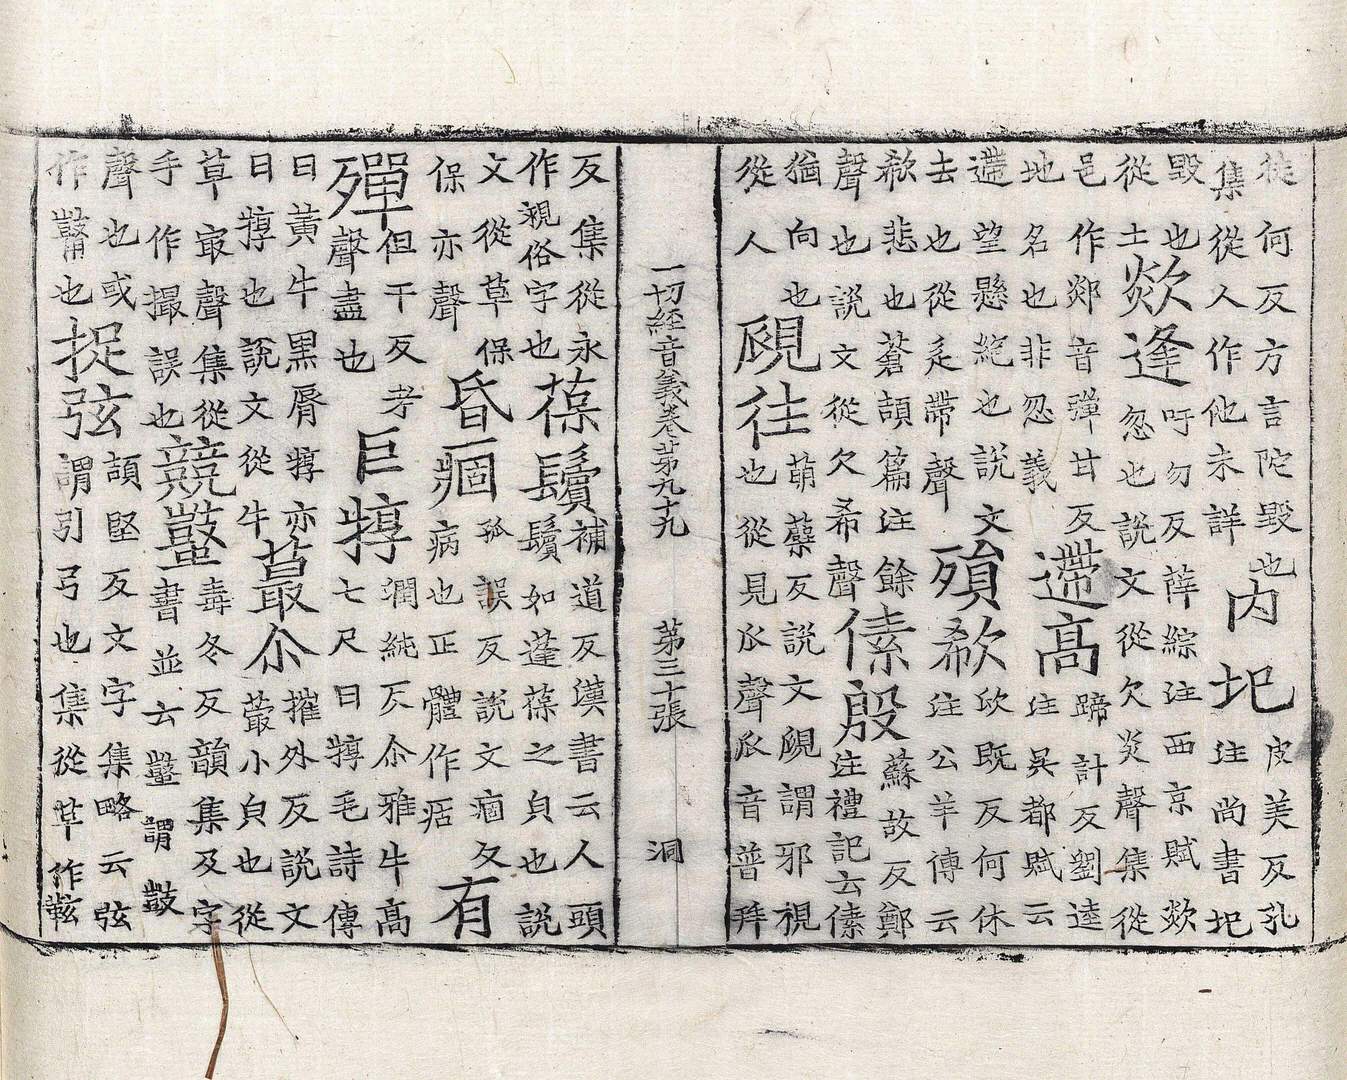 從何反方言陀毀也
集從人作他未詳
內圯
皮美反孔
注尚書圯
毀也
從土
欻逢
吁勿反薛綜注西京賦欻
忽也說文從欠炎聲集從
邑作郯音彈廿反
地名也非忽義
遰高
蹄計反劉逵
注吳都賦云
遰望懸絶也說文
去也從辵帶聲
殨欷
欣既反何休
注公羊傳云
欷悲也蒼頡篇注餘
聲也說文從欠希聲
傃殷
蘇故反鄭
注禮記云傃
猶向也
從人
覛往
萌蘗反說文覛謂邪視
也從見𠂢聲𠂢音普拜
一切經音義卷第九十九　第三十張　洞
反集從永
作覛俗字也
葆鬢
補道反漢書云人頭
鬢如蓬葆之貟也說
文從草保
保亦聲
昏痼
孤誤反說文痼久
病也正體作㾇
有
殫
但干反考
聲盡也
巨犉
潤純反尒雅牛高
七尺曰犉毛詩傳
曰黃牛黑脣犉亦
曰犉也說文從牛
蕞尒
摧外反說文
蕞小貟也從
草㝡聲集從
手作撮誤也
競鼜
毒冬反韻集及字
書並云鼜謂鼓
聲也或
作也
捉弦
頡堅反文字集略云弦
謂引弓也集從草作